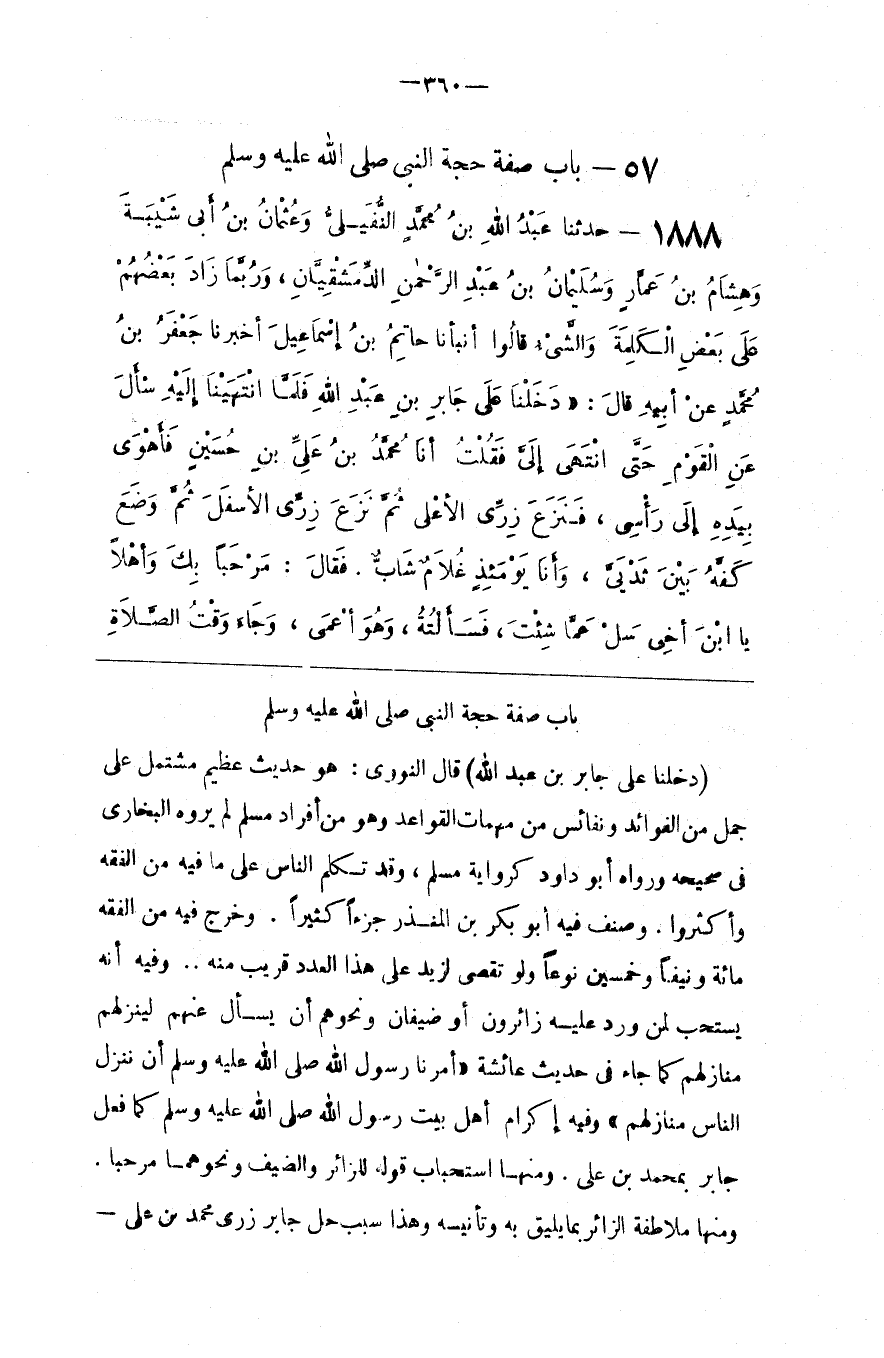 —٣٦٠—
٥٧ — باب صفة حجة النبى صلى الله عليه وسلم
١٨٨٨ — حدثنا عَبْدُ اللهِ بنُ مُحمَّدٍ النُّفَيــلىُّ وَعُثْمانُ بنُ أَبى شَيْبَـةَ
وَهِشَامُ بنُ عَمَّارٍ وَسُلَيْمانُ بنُ عَبْدِ الرَّحْمٰنِ الدِّمَشْقِيَّانِ ، وَرُبَّمَا زَادَ بَعْضُهُمْ
عَلَى بَعْضِ الْـكَلِمَةَ وَالشَّىْءَ قالُوا أنبأنا حاتِمُ بنُ إسْمَاعِيلَ أخبرنا جَعْفَرُ بنُ
مُحمَّدٍ عنْ أبِيهِ قالَ : « دَخَلْنَا عَلَى جَابرِ بنِ عَبْدِ اللهِ فَلَمَّـا انْتَهَيْنَا إلَيْهِ سأَلَ
عَنِ الْقَوْمِ حَتَّى انْتَهَى إلَىَّ فَقُلْتُ أنا مُحمَّدُ بنُ عَلِىِّ بنِ حُسَيْنٍ فَأَهْوَى
بِيَدِهِ إلَى رَأْسِى ، فَـنَزَعَ زِرِّى الأعْلى ثُمَّ نَزَعَ زِرِّى الأسفَلَ ثُمَّ وَضَعَ
كَفَّهُ بَيْنَ ثَدْيَىَّ ، وَأنَا يَوْمَئذٍ غُلَامٌ شَابٌّ . فَقالَ : مَرْحَباً بِكَ وَأهْلاً
يا ابْنَ أخِى سَلْ عَمَّا شِئْتَ ، فَسَـأَلْتُهُ ، وَهُوَ أعْمَى ، وَجَاءَ وَقْتُ الصَّـلَاةِ
باب صفة حجة النبى صلى الله عليه وسلم
(دخلنا على جابر بن عبد الله) قال النووى : هو حديث عظيم مشتمل على
جمل من الفوائد ونفائس من مهمات القواعد وهو من أفراد مسلم لم يروه البخارى
فى صحيحه ورواه أبو داود كرواية مسلم ، وقد تـكلم الناس على ما فيه من الفقه
وأكثروا . وصنف فيه أبو بكر بن المنـذر جزءاً كثيراً . وخرج فيه من الفقه
مائة ونيفاً وخمسين نوعاً ولو تقصى لزيد على هذا العدد قريب منه .. وفيه أنه
يستحب لمن ورد عليـه زائرون أو ضيفان ونحوهم أن يسـأل عنهم لينزلهم
منازلهم كما جاء فى حديث عائشة «أمرنا رسول الله صلى الله عليه وسلم أن ننزل
الناس منازلهم » وفيه إكرام أهل بيت رسول الله صلى الله عليه وسلم كما فعل
جابر بمحمد بن على . ومنهـا استحباب قوله للزائر والضيف ونحوهمـا مرحبا .
ومنها ملاطفة الزائر بما يليق به وتأنيسه وهذا سبب حل جابر زرى محمد بن على —